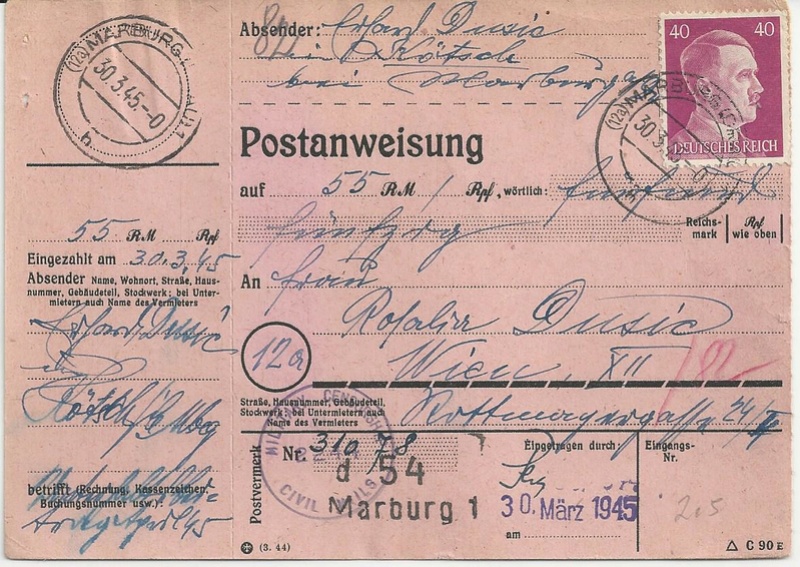 (12a) MARBURG
30.3.45.-0
55 RM Rpf
Eingezahlt am 30.3.45
Absender Name, Wohnort, Straße, Haus-
nummer, Gebäudeteil, Stockwerk; bei Unter-
mietern auch Name des Vermieters
Erhard Dusic
in
Kötsch
betrifft (Rechnung, Kassenzeichen,
Buchungsnummer usw.):
Absender: Erhard Dusic
in Kötsch
bei Marburg
40 40
DEUTSCHES REICH
(12a) MARB
30.3.4
Postanweisung
auf 55 RM / Rpf, wörtlich: fünfund
fünfzig
Reichs-
mark
Rpf
wie oben
An Frau
Rosalia Dusic
12a
Wien, XII /82
Straße, Hausnummer, Gebäudeteil,
Stockwerk; bei Untermietern auch
Name des Vermieters
Rottmayergasse 24/
MILITARY CENSORSHIP
CIVIL MAILS
Postvermerk
Nr. 310
d 54
Marburg 1
Eingetragen durch:
30. März 1945
am
Eingangs-
Nr.
(3. 44)
C 90 E